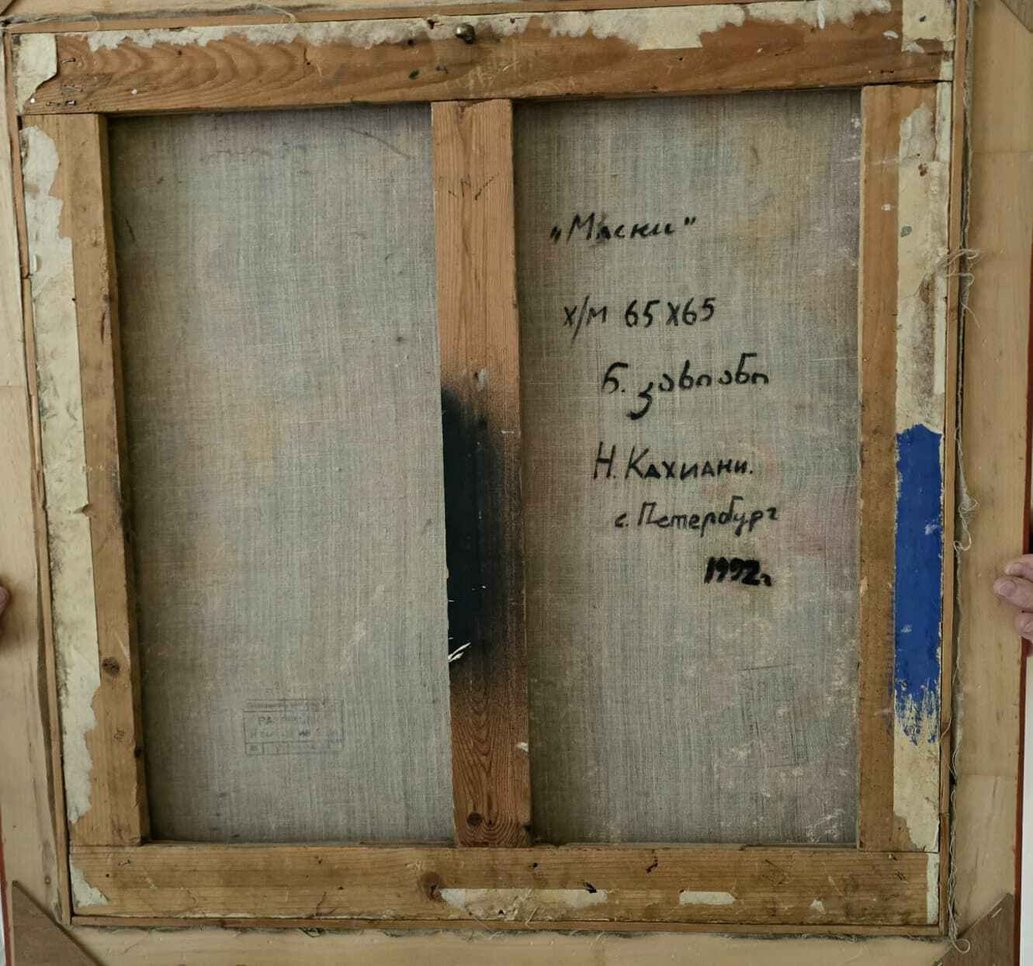 „Маски"
х/м 65 х65
ნ. კახიანი
Н. Кахиани.
с. Петербург
1992г